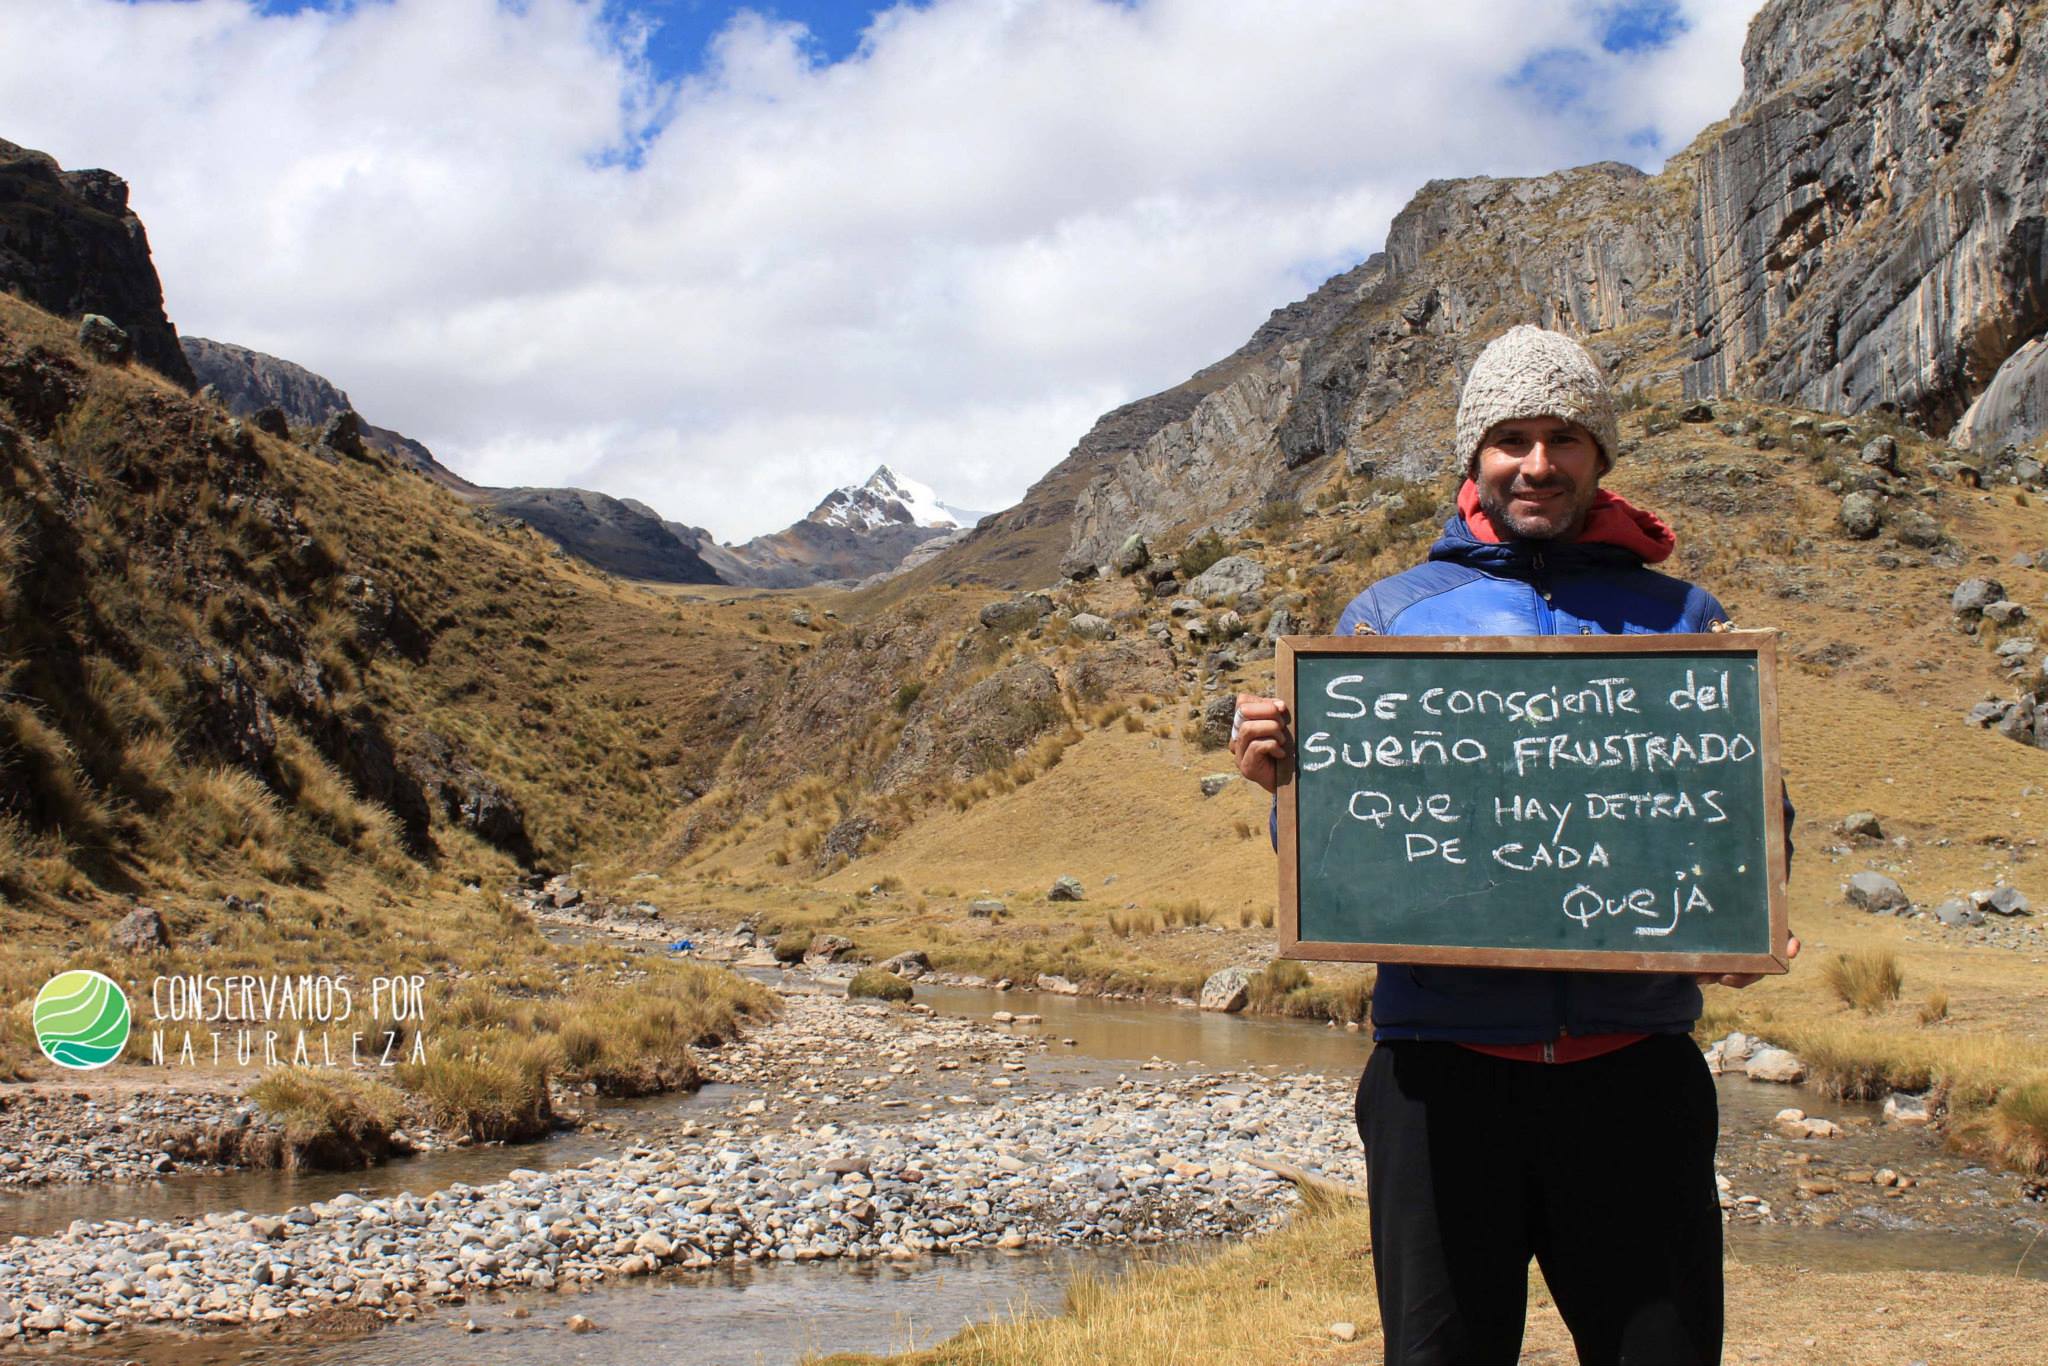 Se consciente del
sueño FRUSTRADO
Que HAY DETRAS
DE CADA
QuejA
CONSERVAMOS POR
NATURALEZA